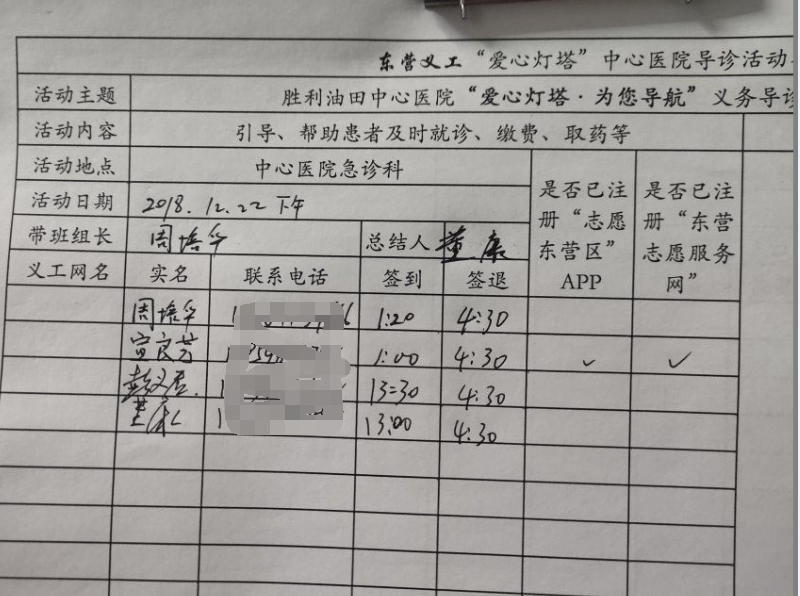 东营义工“爱心灯塔”中心医院导诊活动
活动主题 胜利油田中心医院“爱心灯塔·为您导航”义务导诊
活动内容 引导、帮助患者及时就诊、缴费、取药等
活动地点 中心医院急诊科
活动日期 2018.12.22 下午
带班组长 周培华 总结人 董康
义工网名 实名 联系电话 签到 签退 是否已注册“志愿东营区”APP 是否已注册“东营志愿服务网”
周培华 1:20 4:30
宣良芳 1:00 4:30 ✓ ✓
13:30 4:30
13:00 4:30